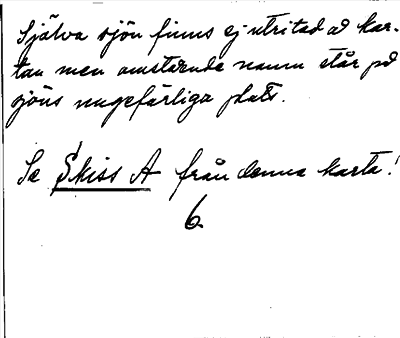 Själva sjön finns ej utritad på kar-
tan men omstående namn står på
sjöns ungefärliga plats.
Se Skiss A från denna karta!
6.